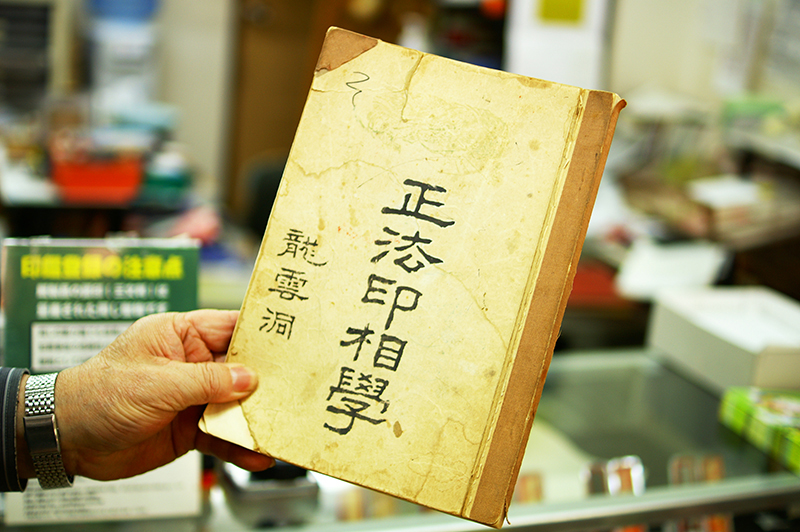 正法印相學
龍雲洞
印鑑登録の注意点